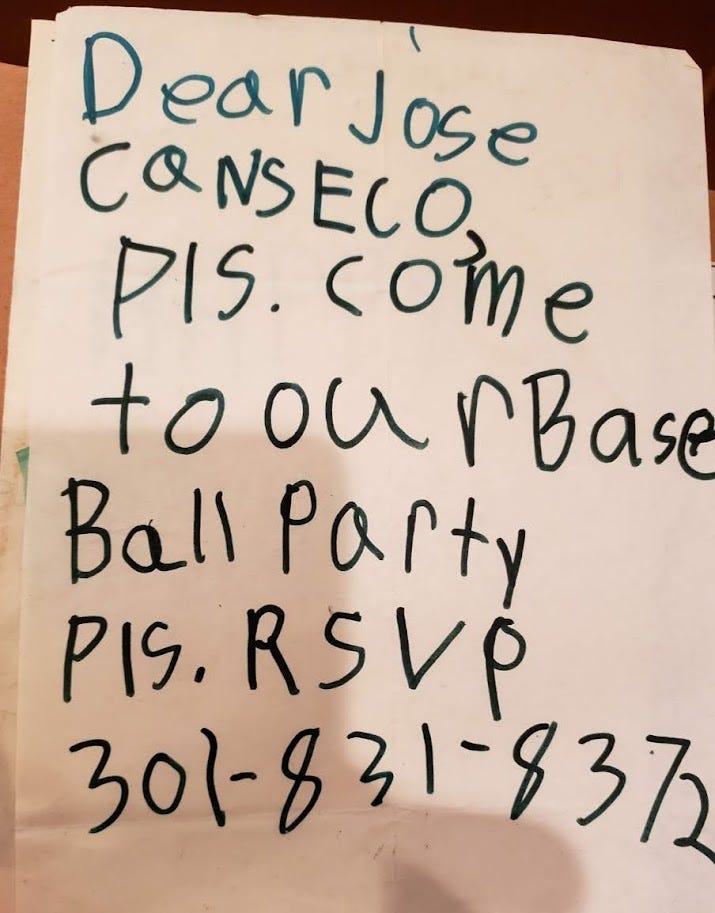 Dear Jose
CANSECO,
Pls. come
to our Base
Ball Party
Pls. RSVP
301-831-8372